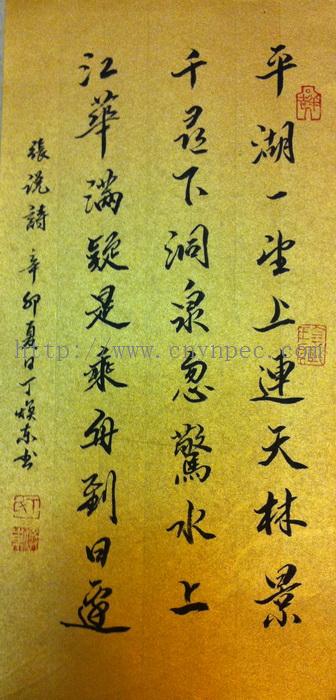 平湖一望上連天林景
千尋下洞泉忽驚水上
江華滿疑是乘舟到日邊
張说詩 辛卯夏日丁煥东书
http://www.cnynpec.com